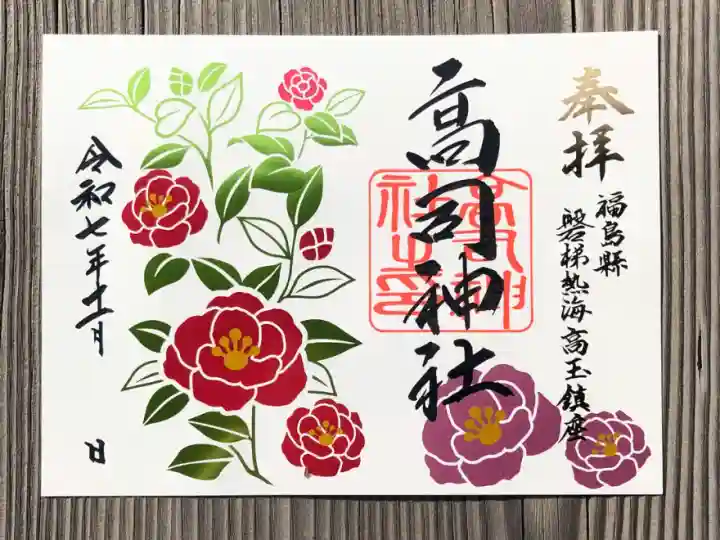 奉拝
福島縣
磐梯熱海高玉鎮座
高司神社
令和七年十一月
日